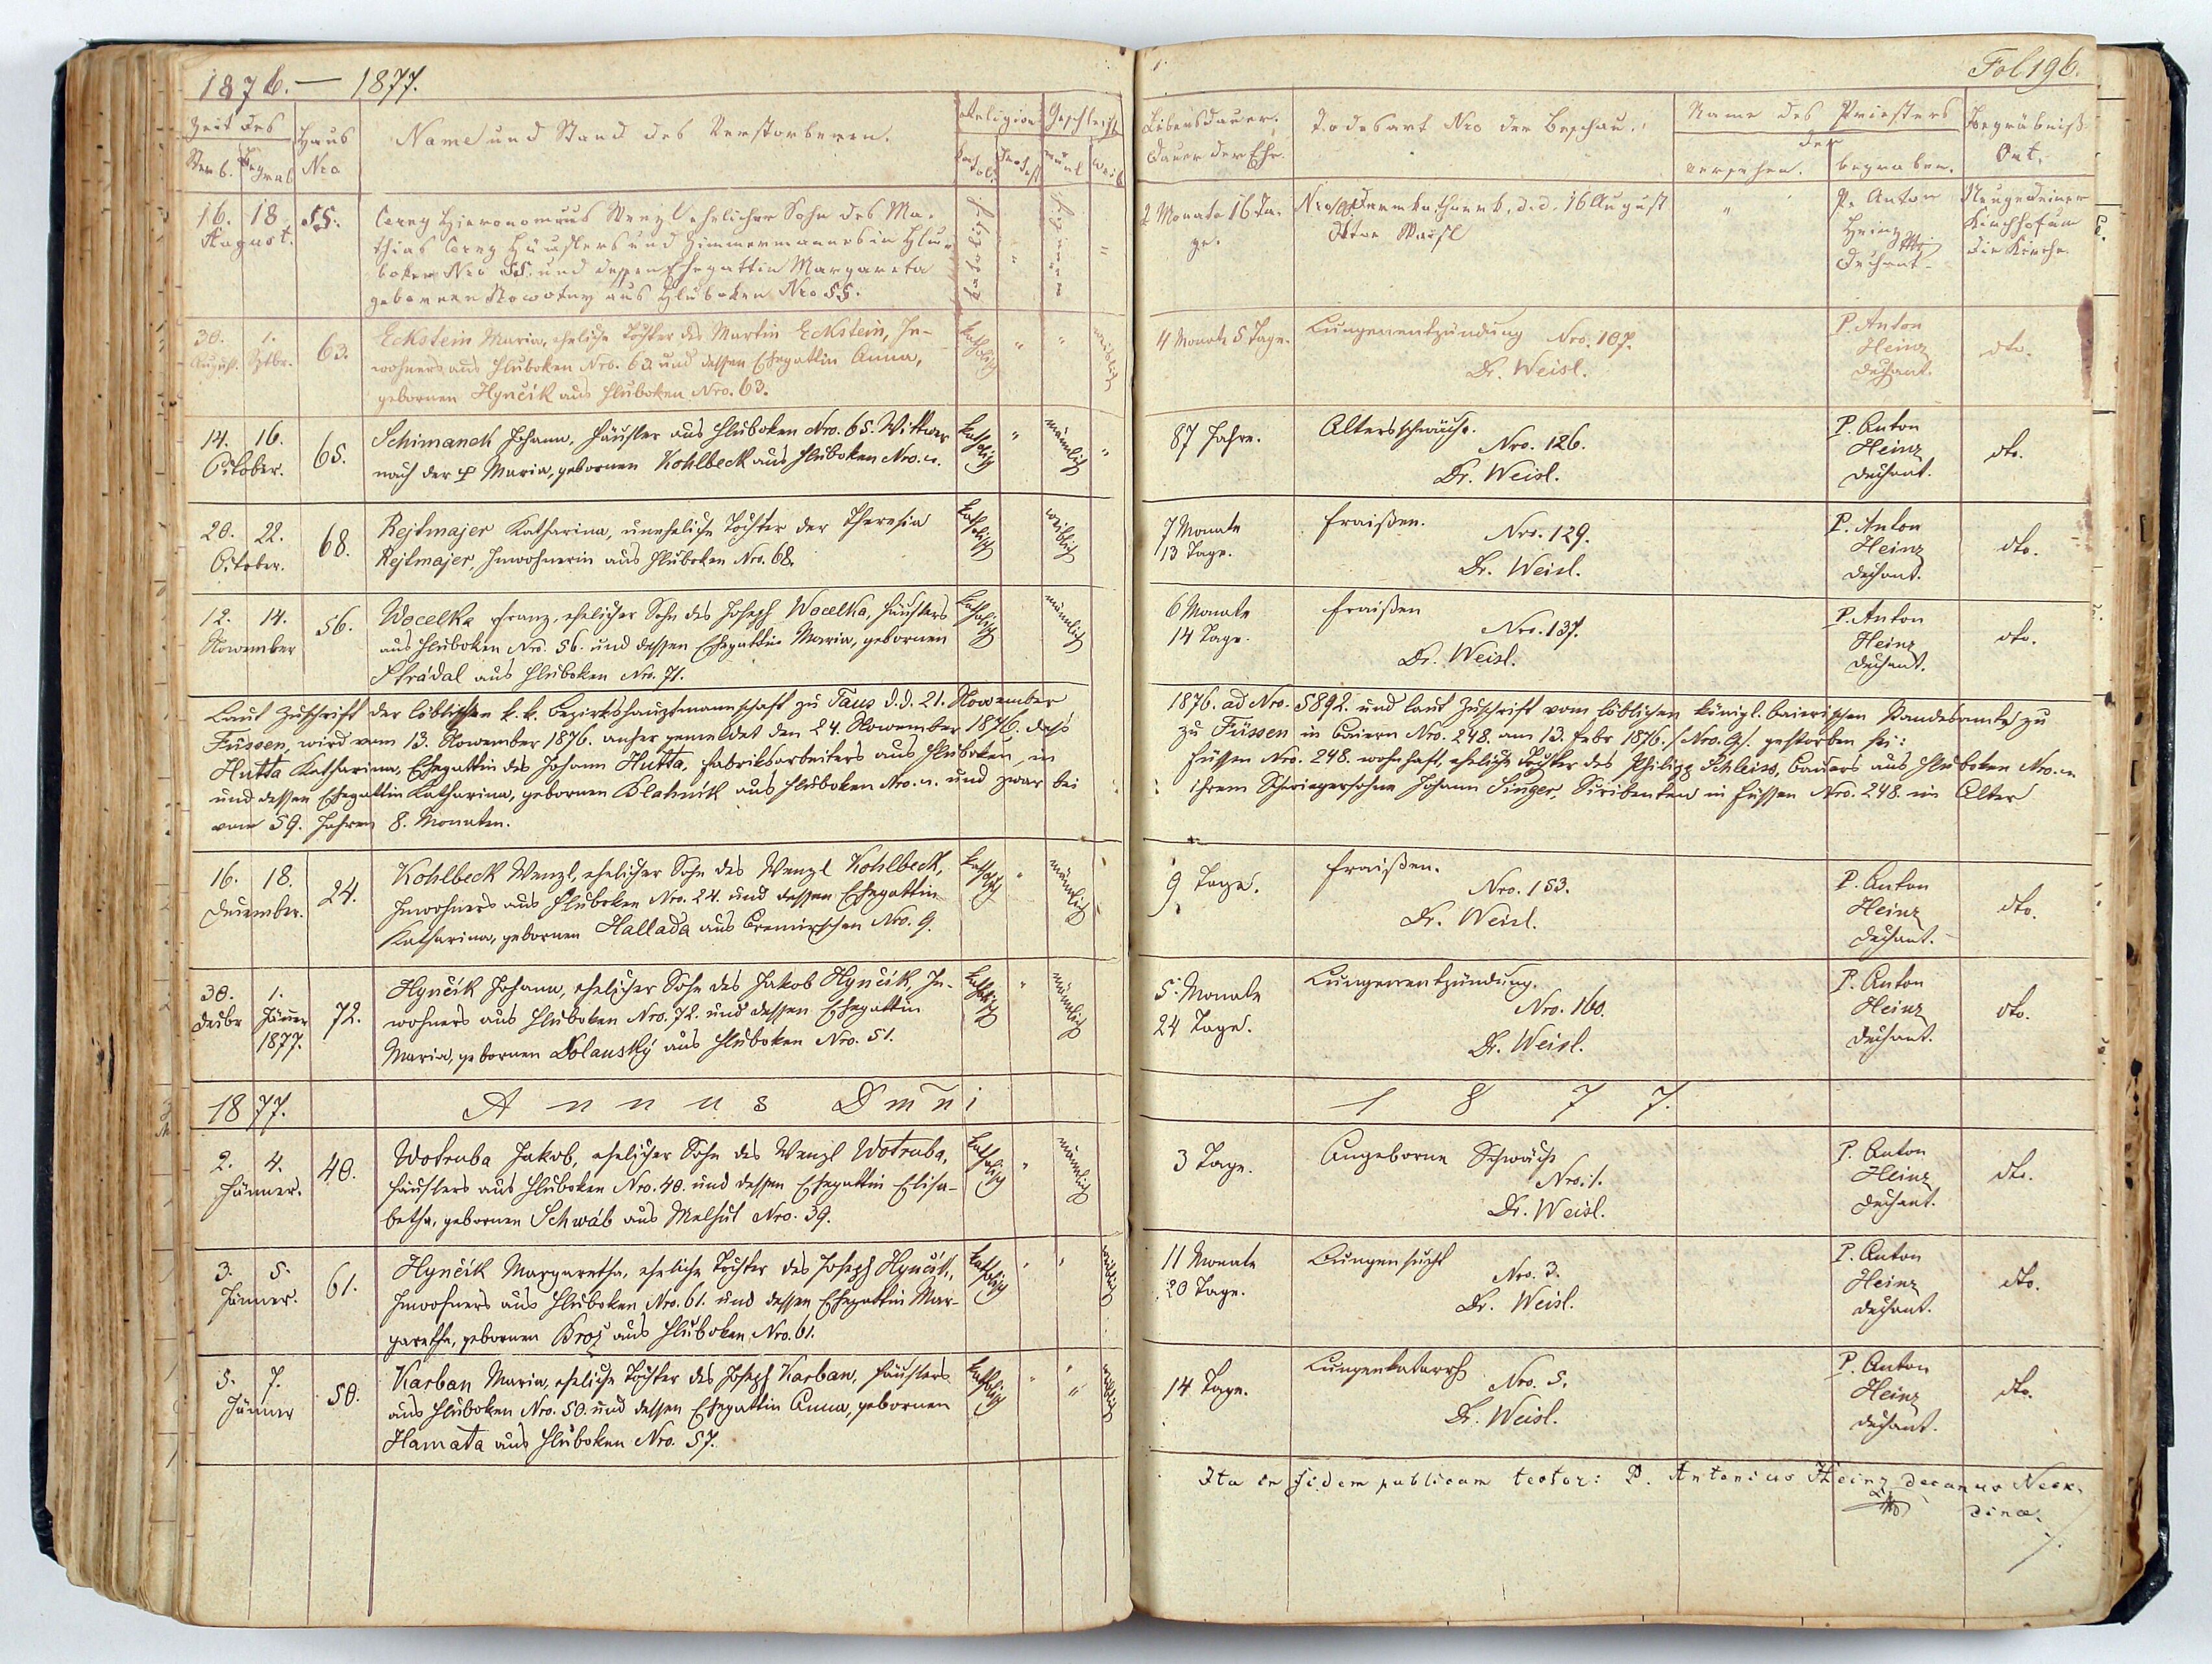 1876. — 1877.
Zeit des
Sterb. Begrab
Haus Nro
Name und Stand des Verstorbenen.
Religion
Kathol.
Geschlecht
männl weib
16. 18. August. 55.
Cerny Hieronymus Wenzl ehelicher Sohn des Ma-
thias Cerny Häuslers und Zimmermannes in Hlu-
boken Nro 55. und dessen Ehegattin Margareta
gebornen Nowotny aus Hluboken Nro 55.
katholisch
30. August. 1. Sptbr. 63.
Eckstein Maria, eheliche Tochter des Martin Eckstein, In-
wohners aus Hluboken Nro. 63. und dessen Ehegattin Anna,
gebornen Hynčik aus Hluboken Nro. 63.
katholisch " " weiblich
14. 16. October. 65.
Schimanek Johann, Häusler aus Hluboken Nro. 65. Wittwer
nach der Maria, gebornen Kohlbeck aus Hluboken Nro. n.
katholisch " männlich "
20. 22. October. 68.
Rejtmajer Katharina, uneheliche Tochter der Theresia
Rejtmajer, Inwohnerin aus Hluboken Nro. 68.
katholisch weiblich
12. 14. November 56.
Wocelka Franz, ehelicher Sohn des Joseph Wocelka, Häuslers
aus Hluboken Nro. 56. und dessen Ehegattin Maria, gebornen
Strádal aus Hluboken Nro. 71.
katholisch männlich
Laut Zuschrift der löblichen k. k. Bezirkshauptmannschaft zu Taus d. d. 21. November
Füssen, wird vom 13. November 1876. anher gemeldet den 24. November 1876. daß
Hutta Katharina, Ehegattin des Johann Hutta, Fabriksarbeiters aus Hluboken, in
und dessen Ehegattin Katharina, gebornen Blahnik aus Hluboken Nro. n. und zwar bei
vom 59. Jahren 8. Monaten.
16. 18. December. 24.
Kohlbeck Wenzl, ehelicher Sohn des Wenzl Kohlbeck,
Inwohners aus Hluboken Nro. 24. und dessen Ehegattin
Katharina, gebornen Hallada aus Nro. 9.
katholisch " männlich
30. Decbr 1. Jänner 1877. 72.
Hynčik Johann, ehelicher Sohn des Jakob Hynčik, In-
wohners aus Hluboken Nro. 72. und dessen Ehegattin
Maria, gebornen Dolanský aus Hluboken Nro. 51.
katholisch " männlich
1877. Annus Dmni
2. 4. Jänner. 40.
Wotruba Jakob, ehelicher Sohn des Wenzl Wotruba,
Häuslers aus Hluboken Nro. 40. und dessen Ehegattin Elisa-
betha, gebornen Schwáb aus Melhut Nro. 39.
katholisch " männlich
3. 5. Jänner. 61.
Hynčik Margaretha, eheliche Tochter des Joseph Hynčik,
Inwohners aus Hluboken Nro. 61. und dessen Ehegattin Mar-
garetha, gebornen Brož aus Hluboken Nro. 61.
katholisch " " weiblich
5. 7. Jänner 50.
Karban Maria, eheliche Tochter des Joseph Karban, Häuslers
aus Hluboken Nro. 50. und dessen Ehegattin Anna, gebornen
Hamata aus Hluboken Nro. 57.
katholisch " " weiblich
Fol. 196.
Lebensdauer.
Dauer der Ehe.
Todesart Nro der Beschau.
Name des Priesters
der
versehen. begraben.
Begräbniß
Ort.
2 Monate 16 Ta-
ge.
Darmkatharrh, d. d. 16 August
Weisl
"
P. Anton
Heinz
Dechant.
Neugedeiner
Kirchhof um
die Kirche.
4 Monate 5 Tage.
Lungenentzündung Nro. 107.
Dr. Weisl.
P. Anton
Heinz
Dechant.
dto.
87 Jahre.
Altersschwäche.
Nro. 126.
Dr. Weisl.
P. Anton
Heinz
Dechant.
dto.
7 Monate
13 Tage.
Fraißen.
Nro. 129.
Dr. Weisl.
P. Anton
Heinz
Dechant.
dto.
6 Monate
14 Tage.
Fraißen
Nro. 137.
Dr. Weisl.
P. Anton
Heinz
Dechant.
dto.
1876. ad Nro. 5892. und laut Zuschrift vom löblichen königl. baierischen Standesamte zu
zu Füssen in Baiern Nro. 248. am 13. Febr 1876. /Nro. 9/. gestorben sei:
Füssen Nro. 248. wohnhaft, eheliche Tochter des Philipp Schleiss, Bauers aus Hluboken Nro. n
ihrem Schwiegersohne Johann Singer, Skribenten in Füssen Nro. 248. im Alter
9 Tage.
Fraißen.
Nro. 153.
Dr. Weisl.
P. Anton
Heinz
Dechant.
dto.
5 Monate
24 Tage.
Lungenentzündung.
Nro. 160.
Dr. Weisl.
P. Anton
Heinz
Dechant.
dto.
1877.
3 Tage.
Angeborne Schwäche
Nro. 1.
Dr. Weisl.
P. Anton
Heinz
Dechant.
dto.
11 Monate
20 Tage.
Lungensucht
Nro. 3.
Dr. Weisl.
P. Anton
Heinz
Dechant.
dto.
14 Tage.
Lungenkatarrh
Nro. 5.
Dr. Weisl.
P. Anton
Heinz
Dechant.
dto.
Ita in fidem publicam testor: P. Antonius Heinz decanus Neox-
dinæ.